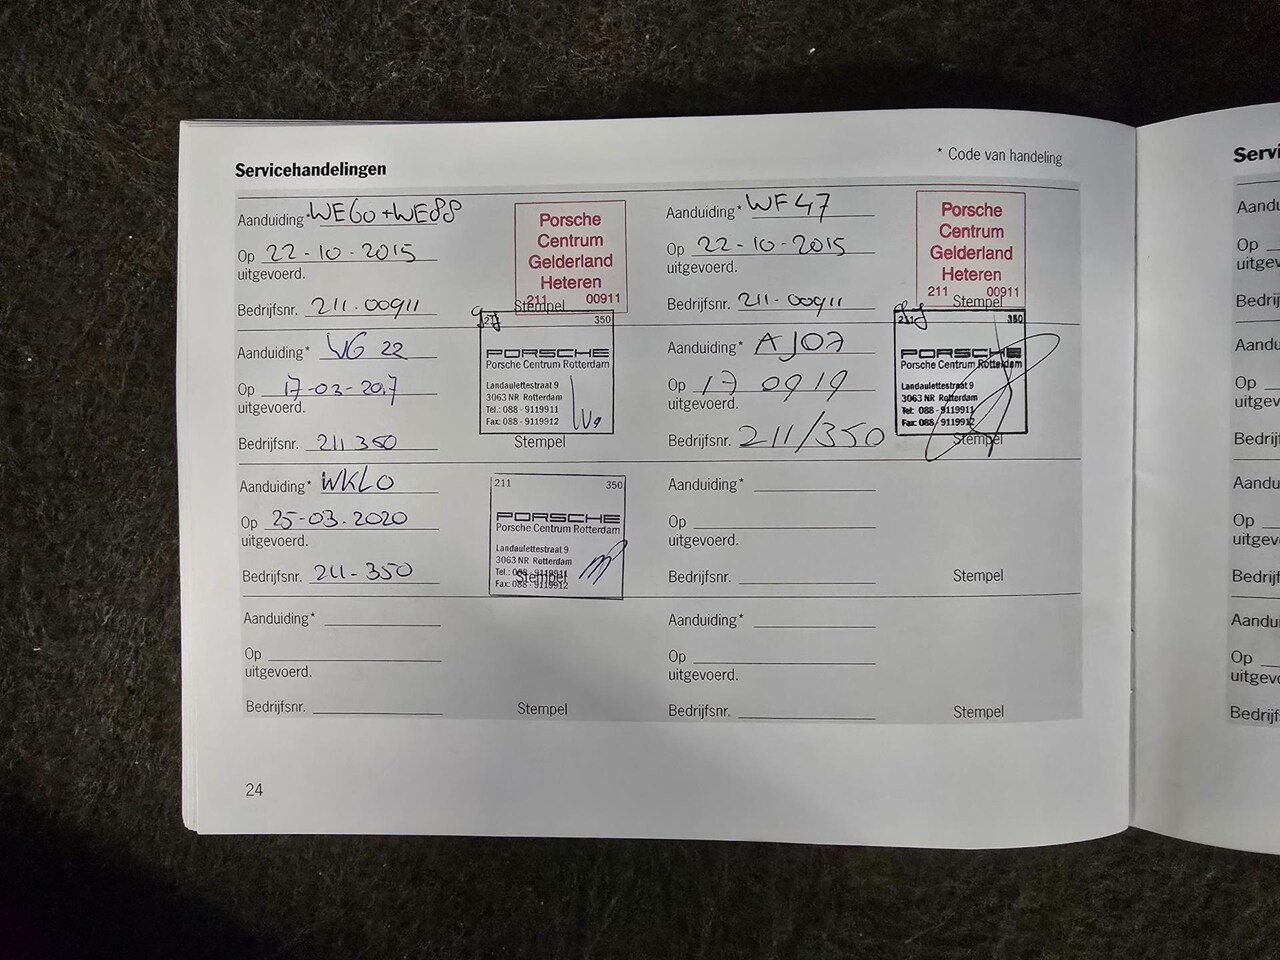 Servicehandelingen
* Code van handeling
Aanduiding* WE60 + WE88
Op 22-10-2015
uitgevoerd.
Bedrijfsnr. 211-00911
Porsche
Centrum
Gelderland
Heteren
211 00911
Stempel
Aanduiding* WF47
Op 22-10-2015
uitgevoerd.
Bedrijfsnr. 211-00911
Porsche
Centrum
Gelderland
Heteren
211 00911
Stempel
Aanduiding* WG 22
Op 17-03-2017
uitgevoerd.
Bedrijfsnr. 211 350
211 350
PORSCHE
Porsche Centrum Rotterdam
Landaulettestraat 9
3063 NR Rotterdam
Tel.: 088 - 9119911
Fax: 088 - 9119912
Stempel
Aanduiding* AJ07
Op 17 09 19
uitgevoerd.
Bedrijfsnr. 211/350
211 350
PORSCHE
Porsche Centrum Rotterdam
Landaulettestraat 9
3063 NR Rotterdam
Tel: 088 - 9119911
Fax: 088 - 9119912
Stempel
Aanduiding* WKL0
Op 25-03-2020
uitgevoerd.
Bedrijfsnr. 211-350
211 350
PORSCHE
Porsche Centrum Rotterdam
Landaulettestraat 9
3063 NR Rotterdam
Tel.: 088 - 9119911
Fax: 088 - 9119912
Stempel
Aanduiding*
Op
uitgevoerd.
Bedrijfsnr. Stempel
Aanduiding*
Op
uitgevoerd.
Bedrijfsnr. Stempel
Aanduiding*
Op
uitgevoerd.
Bedrijfsnr. Stempel
24
Servi
Aandu
Op
uitgev
Bedrijf
Aandu
Op
uitgev
Bedrijf
Aandu
Op
uitgev
Bedrijf
Aandu
Op
uitgev
Bedrijf